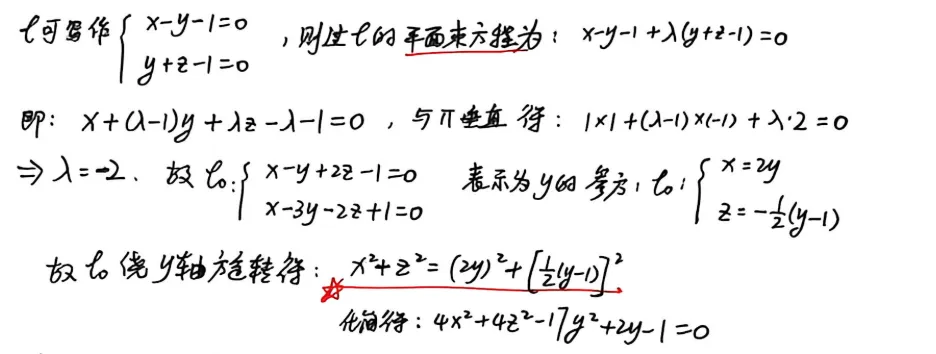 l可写作 { x-y-1=0 , y+z-1=0 ,则过l的平面束方程为: x-y-1+λ(y+z-1)=0
即: x+(λ-1)y+λz-λ-1=0 ,与π垂直得: 1×1+(λ-1)×(-1)+λ·2=0
⇒ λ=-2. 故 l₀: { x-y+2z-1=0 , x-3y-2z+1=0 表示为y的参方, l₀: { x=2y , z=-1/2(y-1)
故l₀绕y轴旋转得: x²+z²=(2y)²+[1/2(y-1)]²
化简得: 4x²+4z²-17y²+2y-1=0